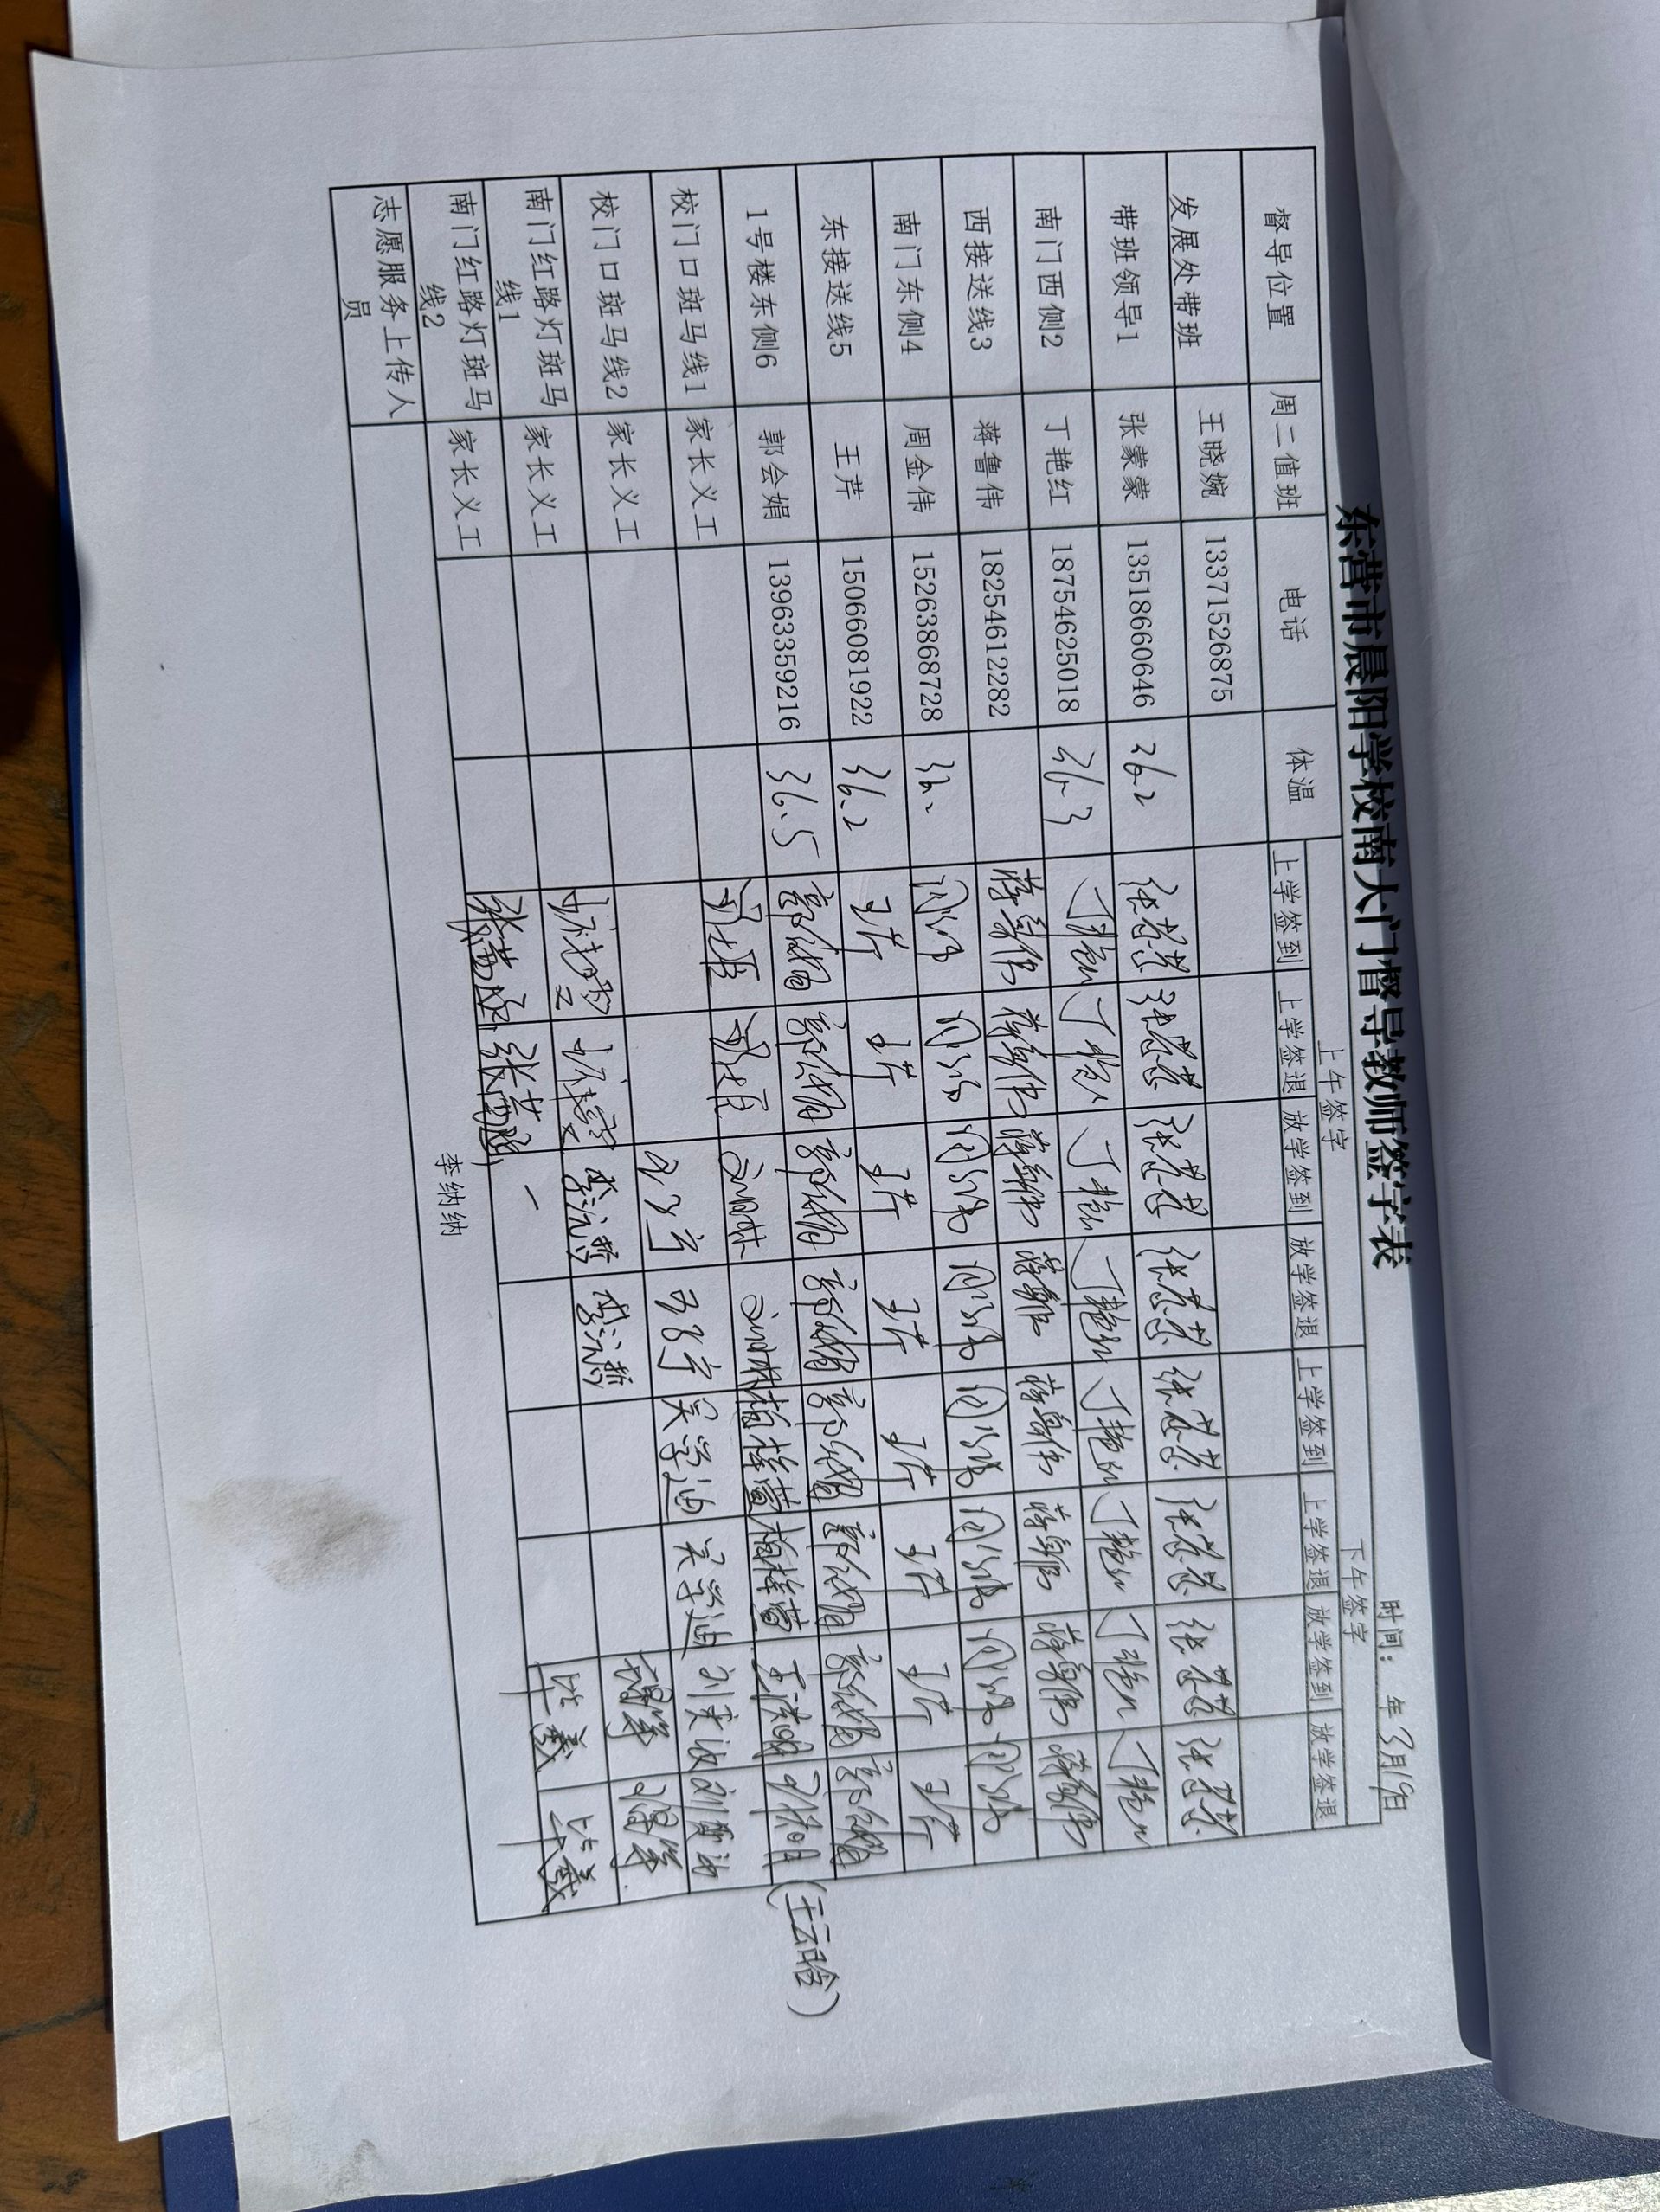 东营市晨阳学校南大门督导教师签字表
时间： 年3月19日
督导位置 周二值班 电话 体温 上午签字 下午签字
上学签到 上学签退 放学签到 放学签退 上学签到 上学签退 放学签到 放学签退
发展处带班 王晓婉 13371526875
带班领导1 张蒙蒙 13518660646 36.2 张蒙蒙 张蒙蒙 张蒙蒙 张蒙蒙 张蒙蒙 张蒙蒙 张蒙蒙 张蒙蒙
南门西侧2 丁艳红 18754625018 36.3 丁艳红 丁艳红 丁艳红 丁艳红 丁艳红 丁艳红 丁艳红 丁艳红
西接送线3 蒋鲁伟 18254612282 蒋鲁伟 蒋鲁伟 蒋鲁伟 蒋鲁伟 蒋鲁伟 蒋鲁伟 蒋鲁伟 蒋鲁伟
南门东侧4 周金伟 15263868728 周金伟 周金伟 周金伟 周金伟 周金伟 周金伟 周金伟 周金伟
东接送线5 王芹 15066081922 36.2 王芹 王芹 王芹 王芹 王芹 王芹 王芹 王芹
1号楼东侧6 郭会娟 13963359216 36.5 郭会娟 郭会娟 郭会娟 郭会娟 郭会娟 郭会娟 郭会娟 郭会娟
校门口斑马线1 家长义工 (王云晗)
校门口斑马线2 家长义工
南门红路灯斑马线1 家长义工 李沅哲 李沅哲
南门红路灯斑马线2 家长义工 一
志愿服务上传人员 李纳纳